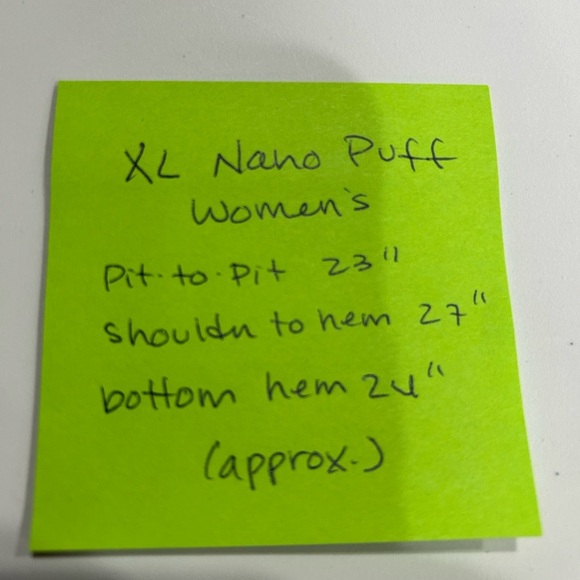 XL Nano Puff
Women's
Pit-to-Pit 23"
shoulder to hem 27"
bottom hem 24"
(approx.)